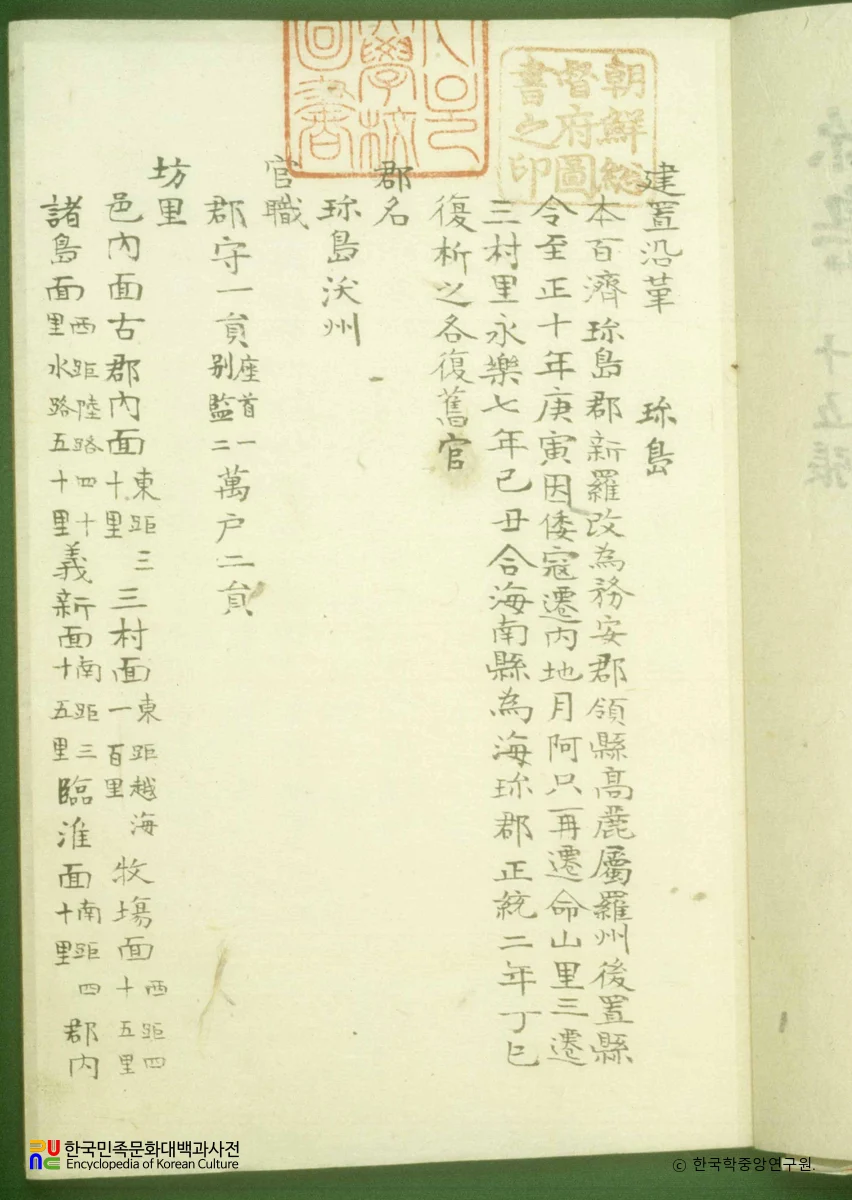 建置沿革 珎島
本百濟珎島郡新羅改為務安郡領縣高麗屬羅州後置縣
令至正十年庚寅因倭寇遷內地月阿只再遷命山里三遷
三村里永樂七年己丑合海南縣為海珎郡正統二年丁巳
復析之各復舊官
郡名
珎島沃州
官職
郡守一貟座首一別監二萬户二貟
坊里
邑內面古郡內面東距三十里三村面東距越海一百里牧塲面西距四十五里
諸島面西距陸路四十里水路五十里義新面南距三十五里臨淮面南距四十里郡內
朝鮮総
督府圖
書之印
學校
圖書
한국민족문화대백과사전
Encyclopedia of Korean Culture
© 한국학중앙연구원.